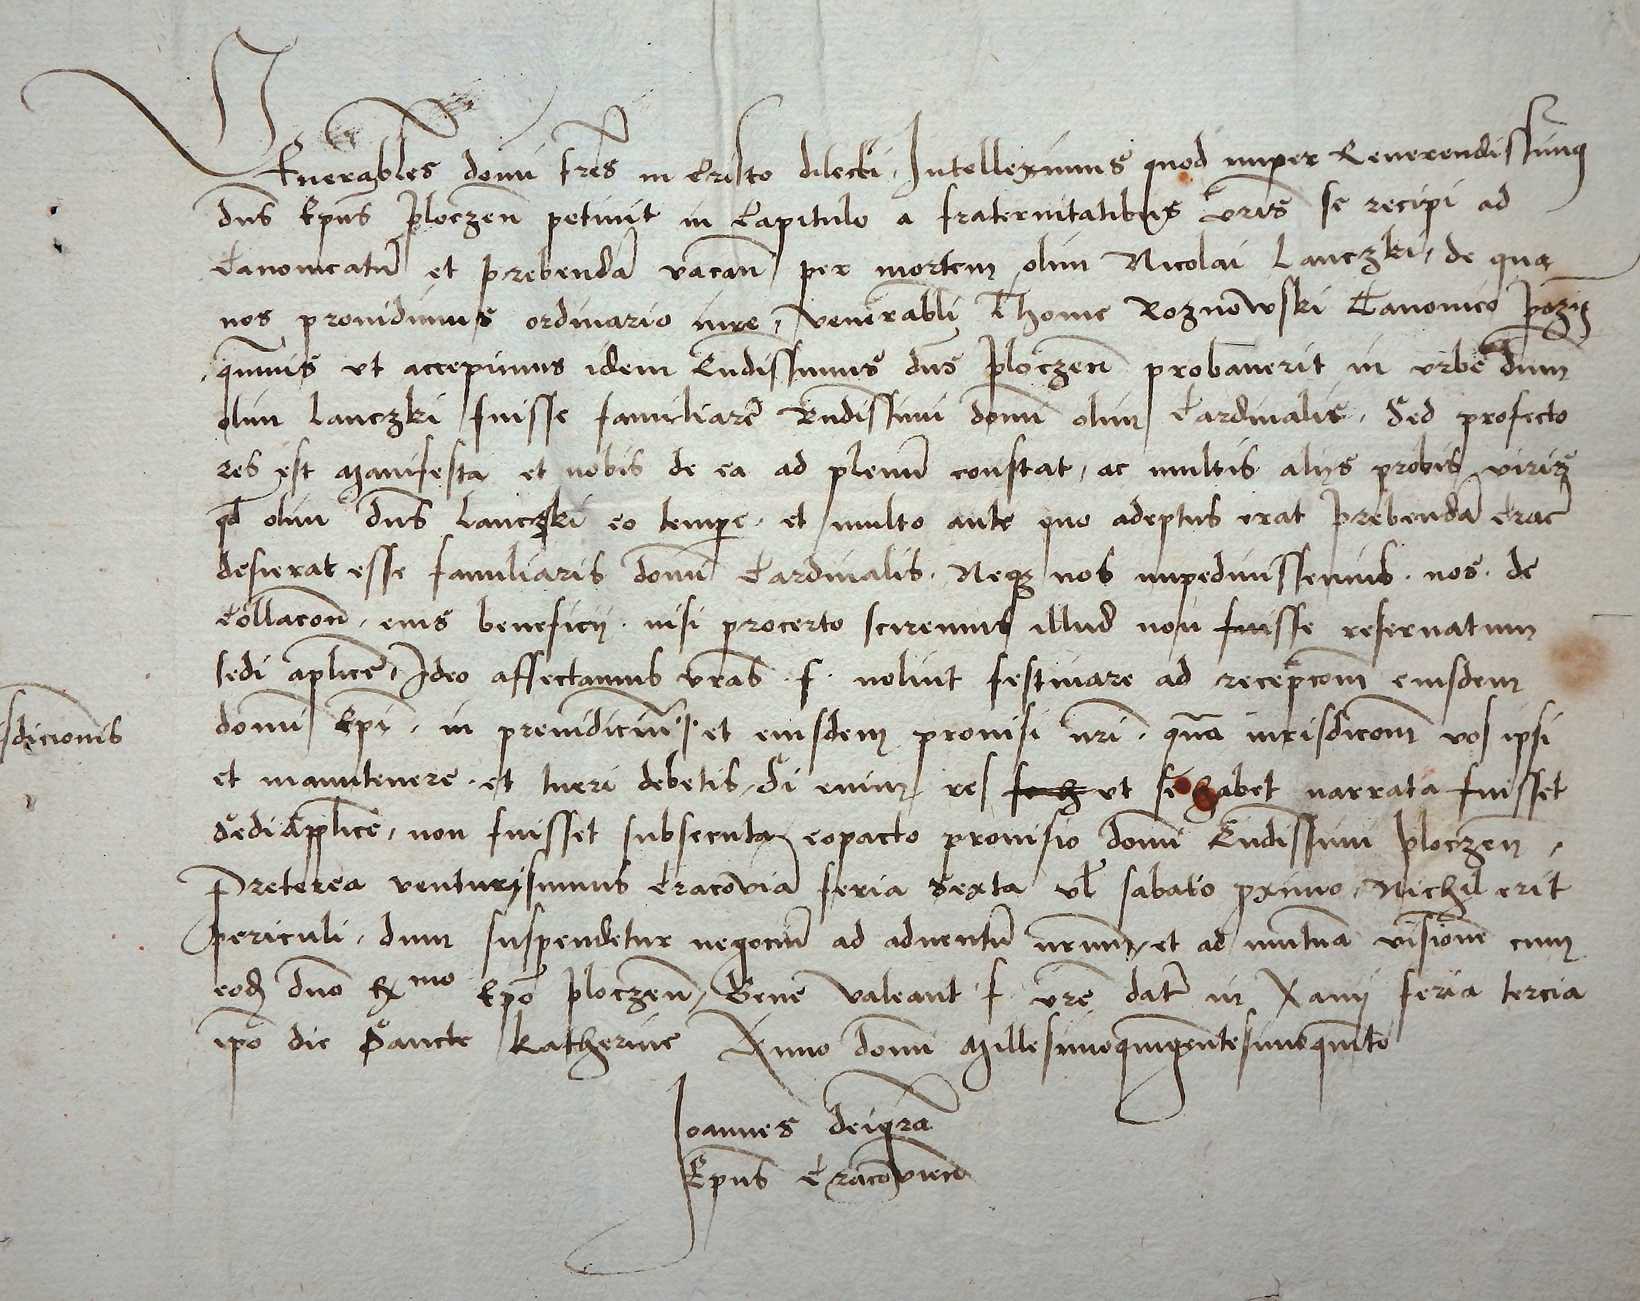 Venerabiles domi fres in Cristo dilecti, Intelleximus quod nuper Reverendissimus
dns Epus Ploczen petiuit in Capitulo a fraternitatibus vris se recipi ad
Canonicatu et prebenda vacan per mortem olim Nicolai Lanczki, de qua
nos prouidimus ordinario iure, venerabili Thome Roznowski Canonico
quauis vt accepimus idem Rndissimus dns Ploczen probauerit in vrbe dnm
olim Lanczki fuisse familiare Rndissimi domi olim Cardinalis. Sed profecto
res est manifesta et nobis de ea ad plenu constat, ac multis alijs probis viris
qd olim dns Lanczki eo tempe et multo ante quo adeptus erat prebenda Crac
desierat esse familiaris domi Cardinalis. Neq nos impediuissemus nos de
Collacon eius beneficij nisi procerto sciremus illud non fuisse reseruatum
sedi aplice, Ideo affectamus vras f. nolint festinare ad recepcom eiusdem
domi Epi, in preiudiciu et eiusdem prouisi nri, qua iurisdicom vos ipsi
sdicionis
et manutenere et tueri debetis, Si enim res vt se habet narrata fuisset
Sedi Applice, non fuisset subsecuta eopacto prouisio domi Rndissimi Ploczen,
Preterea venturisumus Cracouia feria Sexta vl sabato pximo, Nichil erit
periculi, dum suspendetur negociu ad aduentu nrum, et ad mutua visione cum
eod dno Rmo Epo Ploczen, Bene valeant f vre dat in feria tercia
ipo die Sancte Katherine Anno domi Millesimoquigentesimoquinto
Joannes deigra
Epus Cracouien